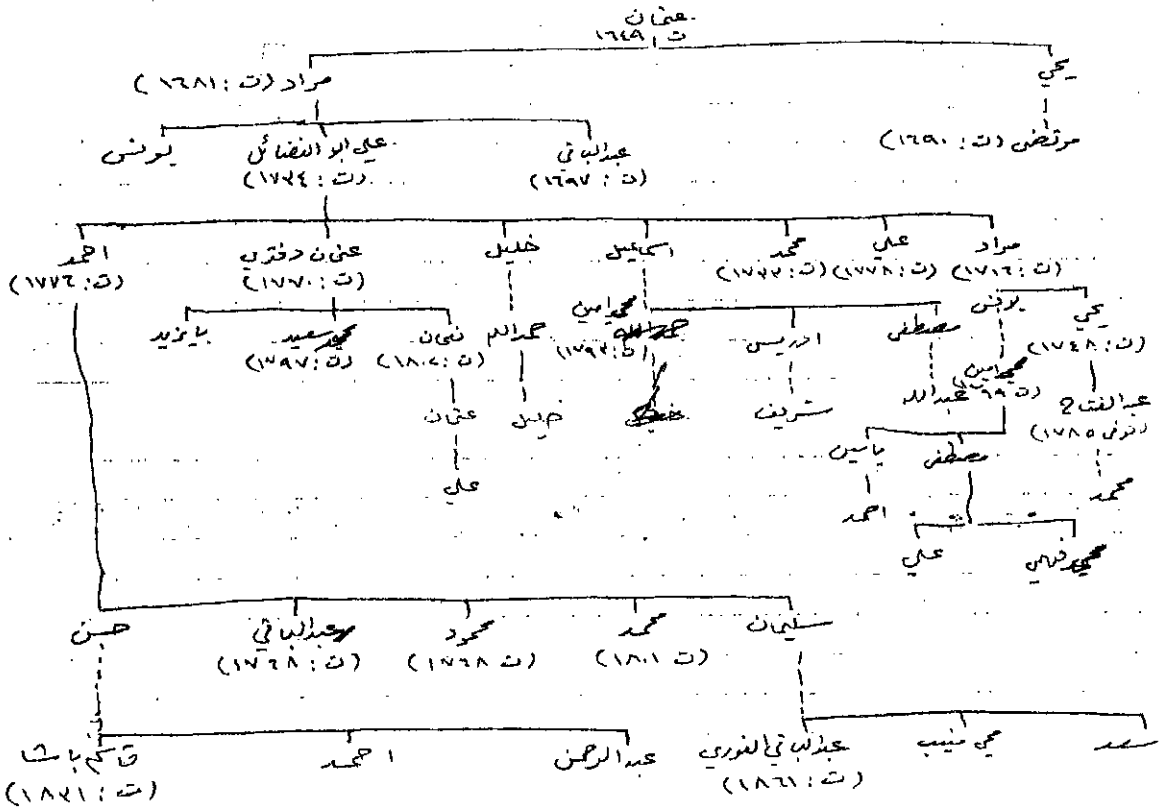 عثمان
ت ١٦٤٩
يحي
مراد (ت : ١٦٨١)
مرتضى (ت : ١٦٩٠)
عبدالباقي
(ت : ١٦٩٧)
علي ابو الفضائل
(ت : ١٧٣٤)
يونس
مراد
(ت : ١٧١٦)
علي
(ت : ١٧٧٨)
محمد
(ت : ١٧٣٣)
اسماعيل
خليل
عثمان دفتري
(ت : ١٧٧٠)
احمد
(ت : ١٧٧٦)
يحي
(ت : ١٧٤٨)
يونس
مصطفى
ادريس
محمد امين
(ت : ١٧٩٣)
حمدالله
نعمان
(ت : ١٨٠٧)
محمد سعيد
(ت : ١٧٩٧)
بايزيد
عبد الفتاح
(توفى ١٧٨٥)
محمد امين
عبدالله
شريف
خليل
عثمان
علي
محمد
مصطفى
ياسين
احمد
محمد فهمي
علي
سليمان
محمد
(ت ١٨٠١)
محمود
(ت ١٧٦٨)
عبدالباقي
(ت : ١٧٦٨)
حسن
سعد
منيب
عبدالباقي الفوري
(ت : ١٨٦١)
عبدالرحمن
احمد
قاسم باشا
(ت : ١٨٣١)